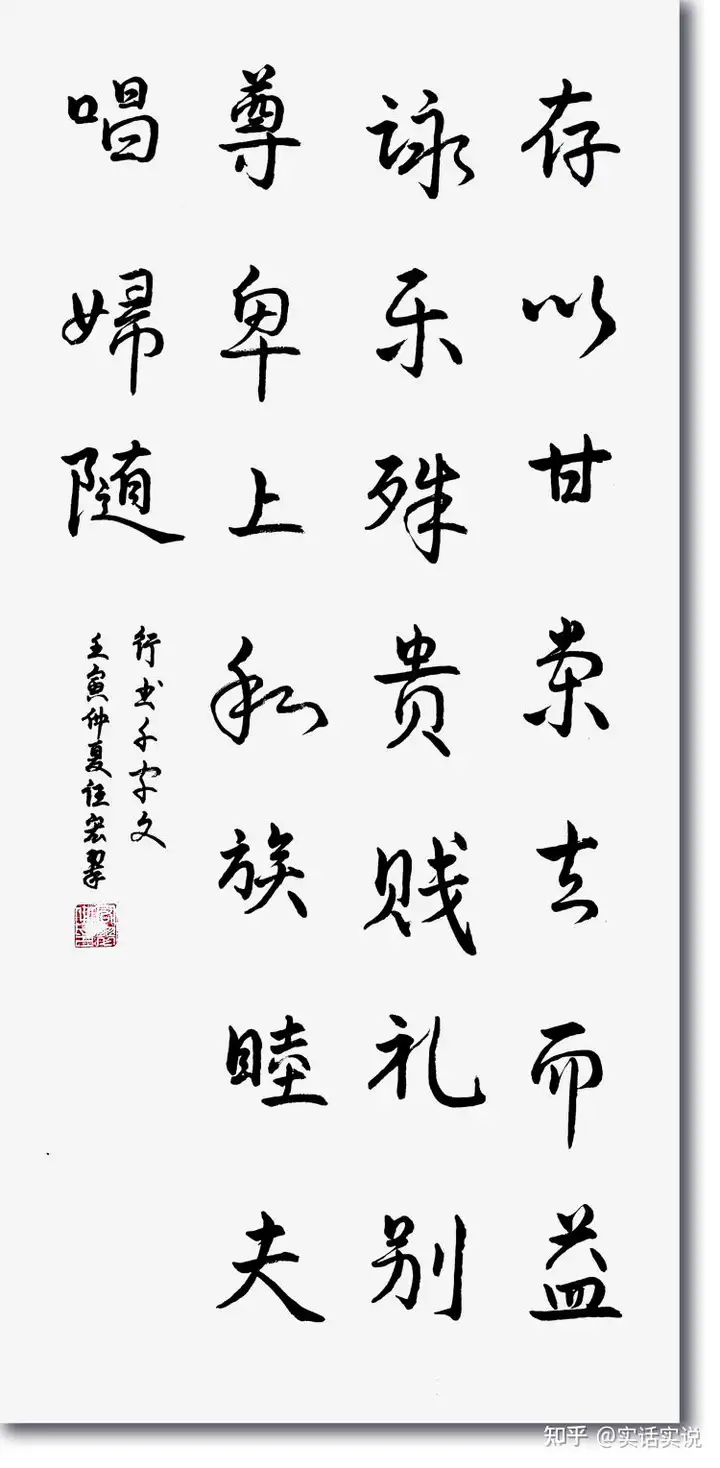 存以甘棠去而益
詠乐殊贵贱礼别
尊卑上和族睦夫
唱婦随
行书千字文
壬寅仲夏
知乎 @实话实说